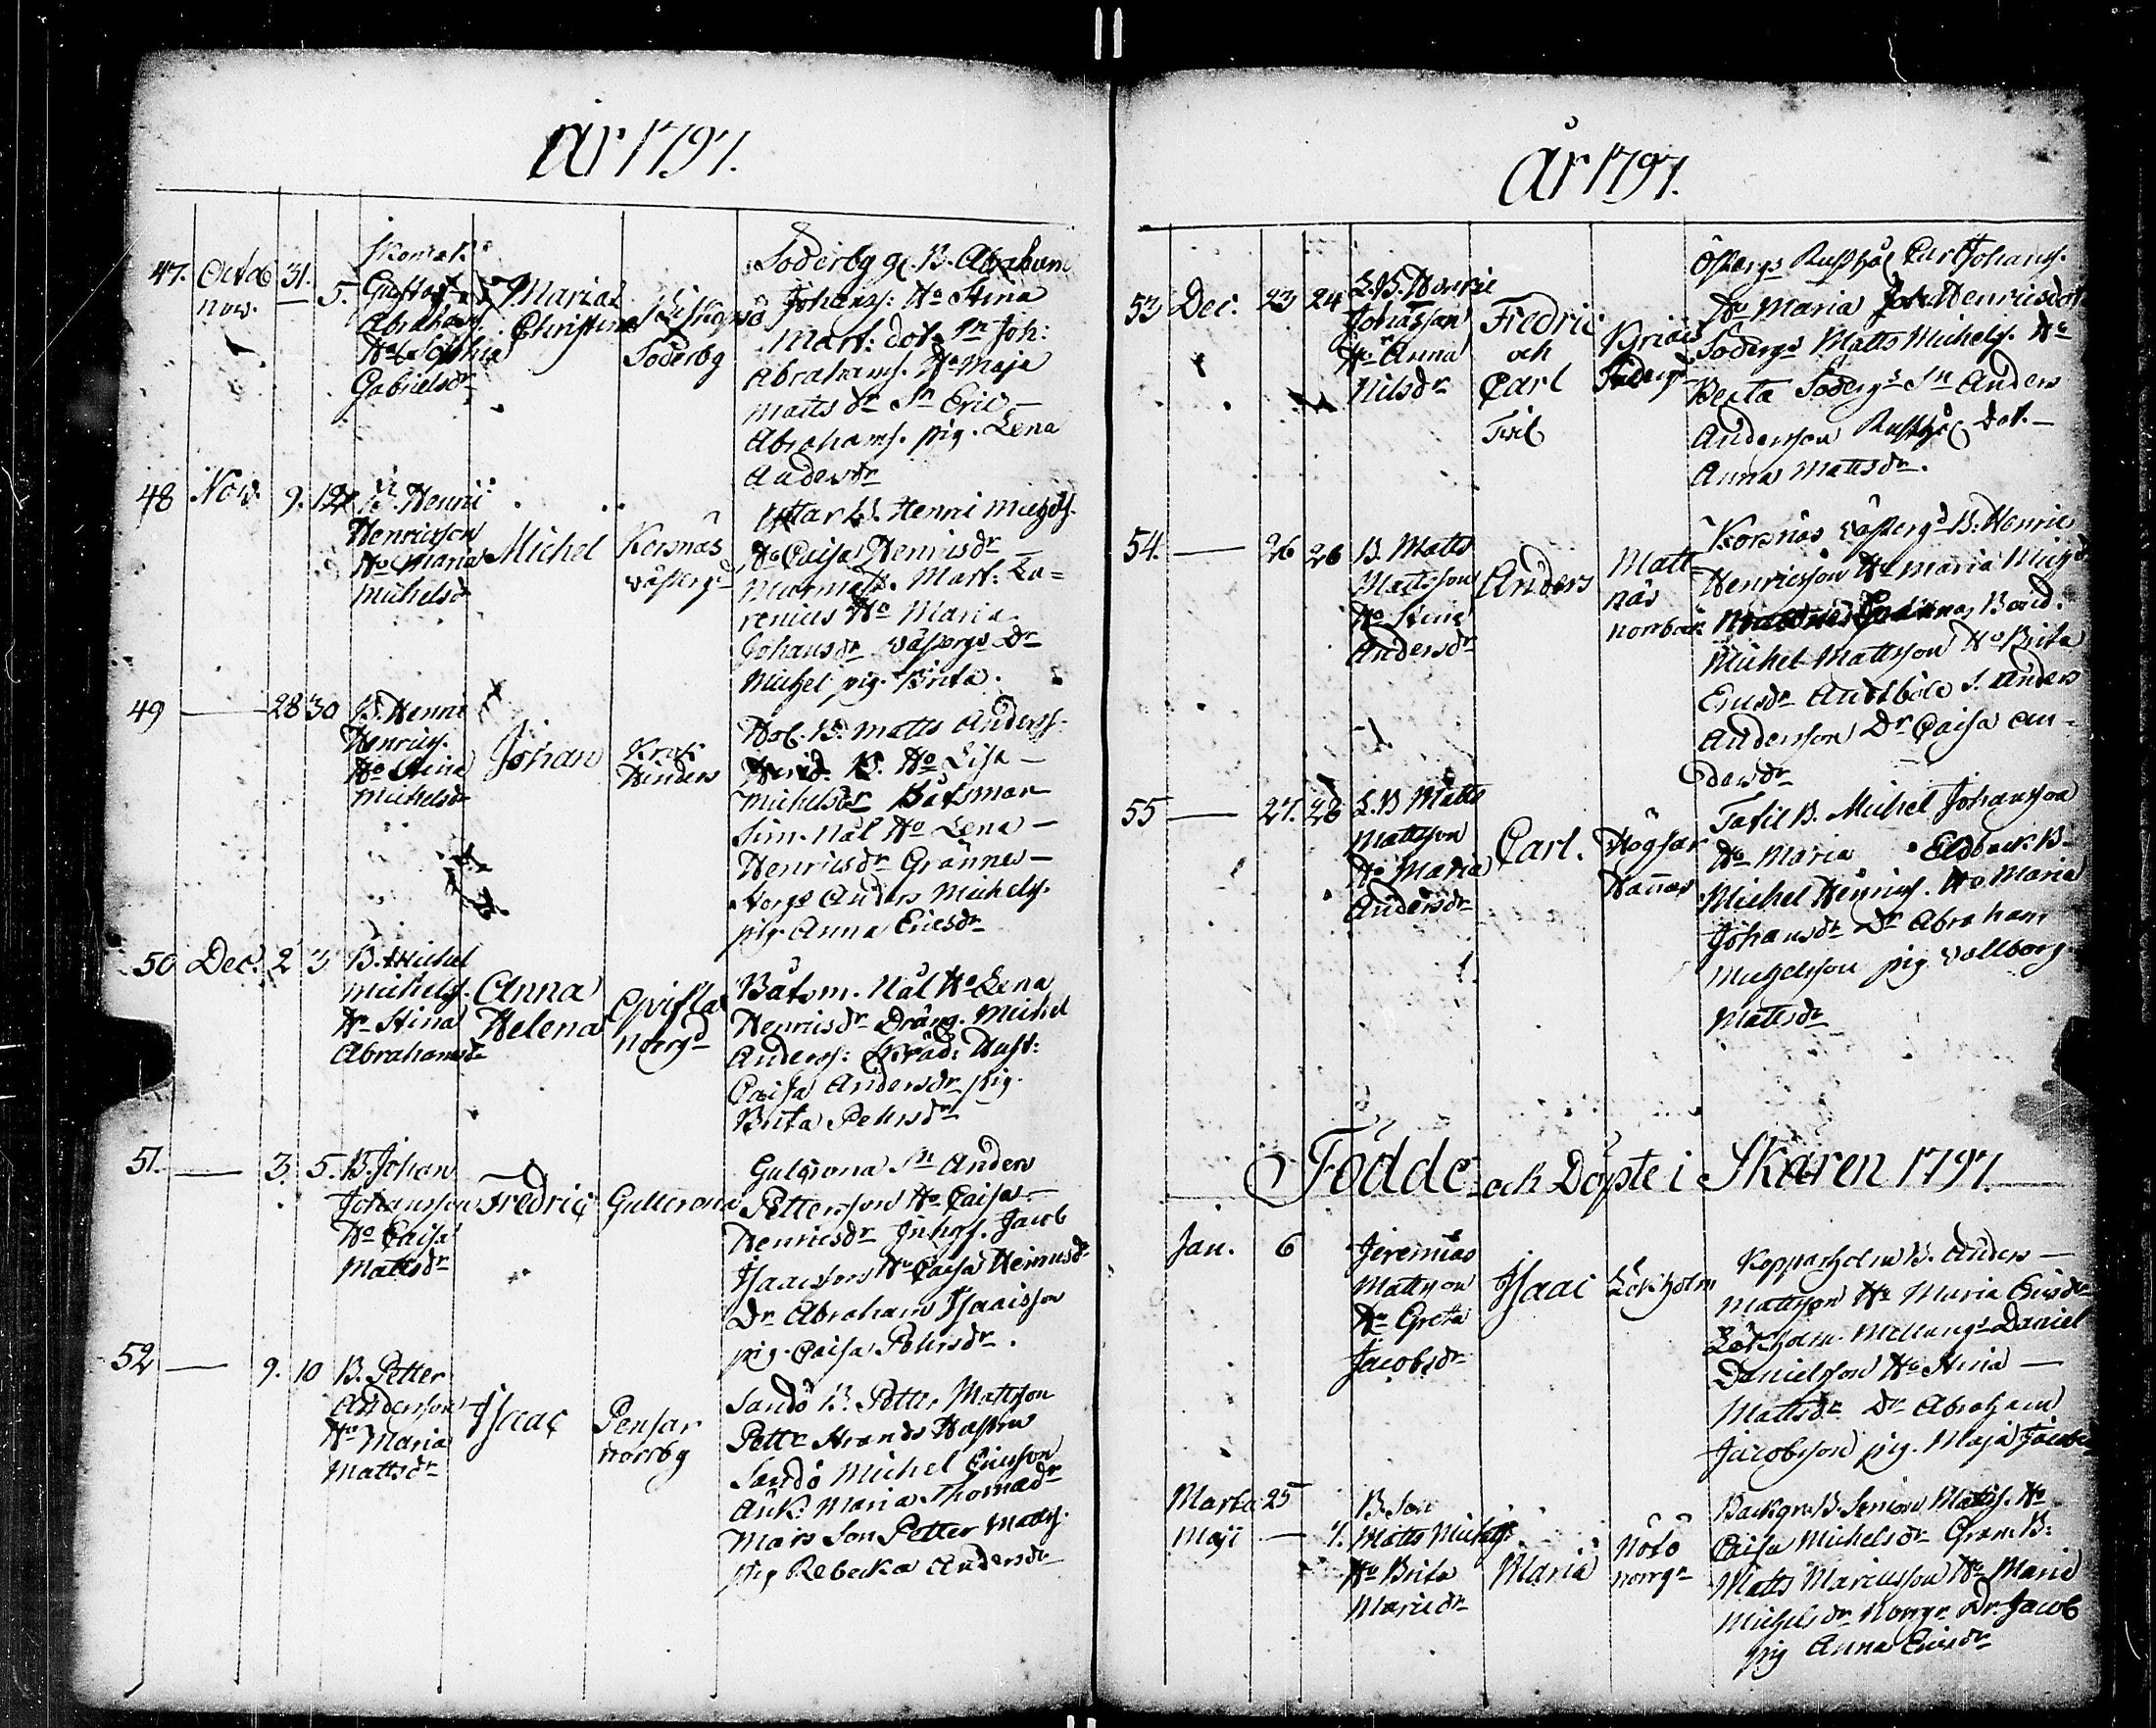 år 1797.
47. Octob 31.
nov. — 5.
Gustaf
Abrahams.
Ho Sophia
Gabrielsdr
Maria
Christina
Biskopsö
Söderby
Söderby gl. B. Abraham
Johanss: Ho Stina
Mart: dotr Sn Joh:
Abrahams. Ho Maja
Matts dr Sn Eric —
Abrahams. pig. Lena
Andersdr
48 Nov. 9. 12
B. Henric
Henricsson
Ho Maria
Michelsdr
Michel
Korsnäs
Västergd
B. Henric Michels.
Ho Caisa Henricsdr —
Mart: La=
renius Ho Maria
Johansdr Västergs Dr
Michel pig. Brita.
49 — 28 30
B. Henric
Henricss.
Ho Stina
Michelsdr
Johan
Krok
Hinders
B. Matts Anderss.
Ho Lisa —
Michelsdr Båtsman
Sim. Nål Ho Lena —
Henricsdr Grännes —
torge Anders Michelss.
pig. Anna Ericsdr
50 Dec. 2 3
B. Michel
Michelss.
Ho Stina
Abrahamsdr
Anna
Helena
Qvifla
Norrgd
Båtsm. Nål Ho Lena
Henricsdr Dräng. Michel
Anderss: Hust:
Caisa Andersdr pig.
Brita Pehrsdr
51. — 3. 5.
B. Johan
Johansson
Ho Caisa
Mattsdr
Fredric
Gullerona
Gulcrona Sn Anders
Pettersson Ho Caisa —
Henricsdr Inhys. Jacob
Isaacsson Ho Caisa Henricsdr
Dr Abraham Isaacsson
pig. Caisa Pehrsdr.
52 — 9. 10
B. Petter
Andersson
Ho Maria
Mattsdr
Isaac
Pensar
Norrby
Sandö B. Petter Mattsson
Petter Strands Hustru
Sandö Michel Ericsson
Änk. Maria Thomadr
Mats Son Petter Mattss.
pig Rebecka Andersdr
År 1797.
53 Dec. 23 24
L.B. Henric
Johansson
Ho Anna
Nilsdr
Fredric
och
Carl
Tvil
Södergd
Östergs Rusth: Carl Johanss.
Ho Maria Henricsdotr
Södergs Matts Michelss. Ho
Beata Södergs Sn Anders
Andersson Rusth: dot. —
Anna Mattsdr.
54. — 26 26
B. Matts
Mattsson
Ho Stina
Andersdr
Anders
Matt
näs
Norrbac
Korsnäs Västergd B. Henric
Henricsson Ho Maria Micsdr
Bond.
Michel Mattsson Ho Brita
Ericsdr S. Anders
Andersson Dr Caisa An-
dersdr
55 — 27. 28
L.B Matts
Mattsson
Ho Maria
Andersdr
Carl.
Högsar
Hannas
B. Michel Johansson
Ho Maria B.
Michel Henricss. Ho Maria
Johansdr Dr Abraham
Michelsson pig. Vallborg
Mattsdr
Födde och Döpte i Skären 1797.
Jan. 6
Jeremias
Mattsson
Ho Greta
Jacobsdr
Isaac
Lökholm
Kopparholm B. Anders —
Mattsson Ho Maria Ericsdr
Lökholm. Mellangs Daniel
Danielsson Ho Stina —
Mattsdr Dr Abraham
Jacobsson pig. Maja Jacobs
Marta 25
Maji — 7.
B. Son
Matts Michelss:
Ho Brita
Maricdr
Maria
Nötö
Norrgd
Backgr. B. Simon Mattss. Ho
Caisa Michelsdr Gran: B:
Matts Maricsson Ho Maria
Michelsdr Norrgs Dr. Jacob
pig Anna Ericsdr